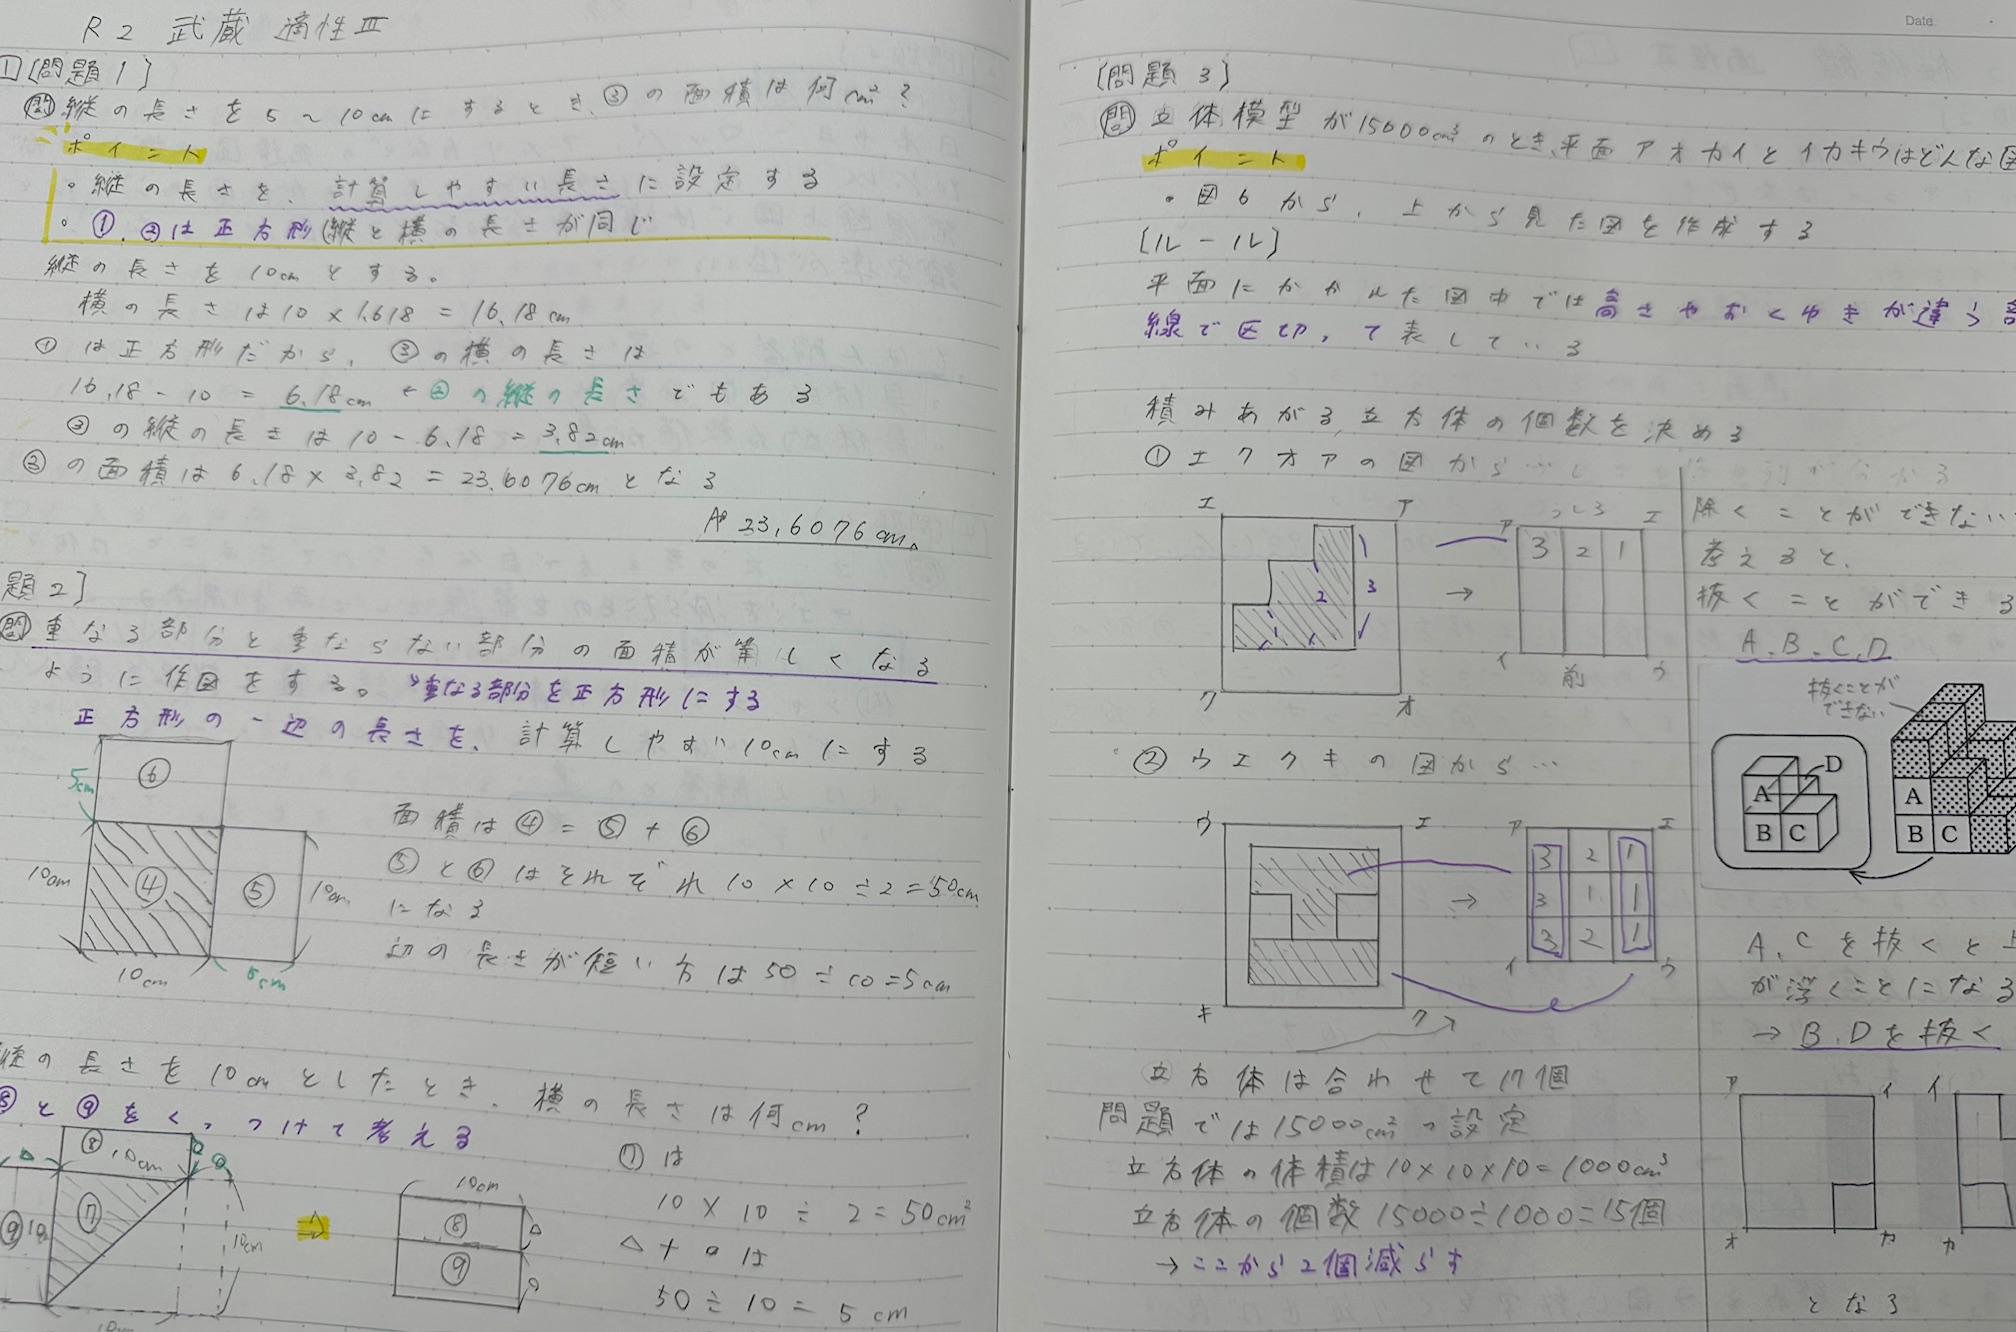 R2 武蔵 適性Ⅲ
1 [問題1]
問 縦の長さを5〜10cmにするとき、③の面積は何cm²?
ポイント
・縦の長さを、計算しやすい長さに設定する
・①、②は正方形(縦と横の長さが同じ
縦の長さを10cmとする。
横の長さは10×1.618=16.18cm
①は正方形だから、③の横の長さは
16.18-10=6.18cm ←②の縦の長さでもある
③の縦の長さは10-6.18=3.82cm
③の面積は6.18×3.82=23.6076cmとなる
A 23,6076cm。
題2]
問 重なる部分と重ならない部分の面積が等しくなる
ように作図をする。 重なる部分を正方形にする
正方形の一辺の長さを、計算しやすい10cmにする
5cm
⑥
④
⑤
10cm
10cm
10cm
5cm
面積は④=⑤+⑥
⑤と⑥はそれぞれ10×10÷2=50cm
になる
辺の長さが短い方は50÷10=5cm
縦の長さを10cmとしたとき、横の長さは何cm?
⑧と⑨をくっつけて考える
⑧ 10cm
⑦
⑨
10cm
10cm
⑧
⑨
⑦は
10×10÷2=50cm²
△+○は
50÷10=5cm
Date
[問題3]
問 立体模型が15000cm³のとき、平面アオカイとイカキウはどんな図
ポイント
・図6から、上から見た図を作成する
[ルール]
平面にかかれた図中では高さやおくゆきが違う
線で区切って表している
積みあがる立方体の個数を決める
①エクオアの図から…
エ ア
1
2 3
ク オ
→
うしろ
ア エ
3 2 1
イ 前 ウ
②ウエクキの図から…
ウ エ
キ ク
→
ア エ
3 2 1
3 1 1
3 2 1
イ ウ
立方体は合わせて17個
問題では15000cm³の設定
立方体の体積は10×10×10=1000cm³
立方体の個数15000÷1000=15個
→ここから2個減らす
除くことができない
考えると、
抜くことができる
A、B、C、D
抜くことが
できない
D
A
B C
A
B C
A、Cを抜くと上
が浮くことになる
→B、Dを抜く
ア イ イ
オ カ カ
となる